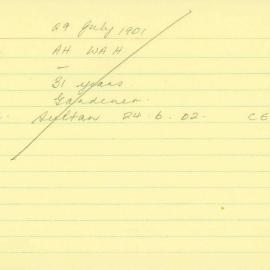 29 July 1901
AH WAH
–
31 years
Gardener.
Sultan 24.6.02. CE